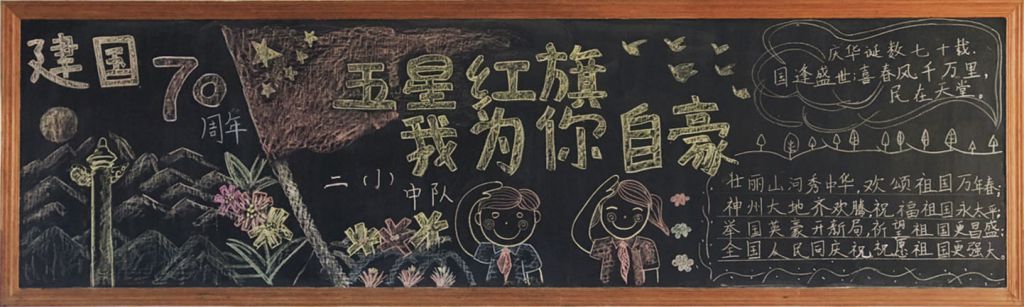 建国
70
周年
五星红旗
我为你自豪
二(小)
中队
庆华诞数七十载.
国逢盛世喜春风千万里,
民在天堂。
壮丽山河秀中华,欢颂祖国万年春;
神州大地齐欢腾,祝福祖国永太平;
举国英豪开新局,祈望祖国更昌盛;
全国人民同庆祝,祝愿祖国更强大。